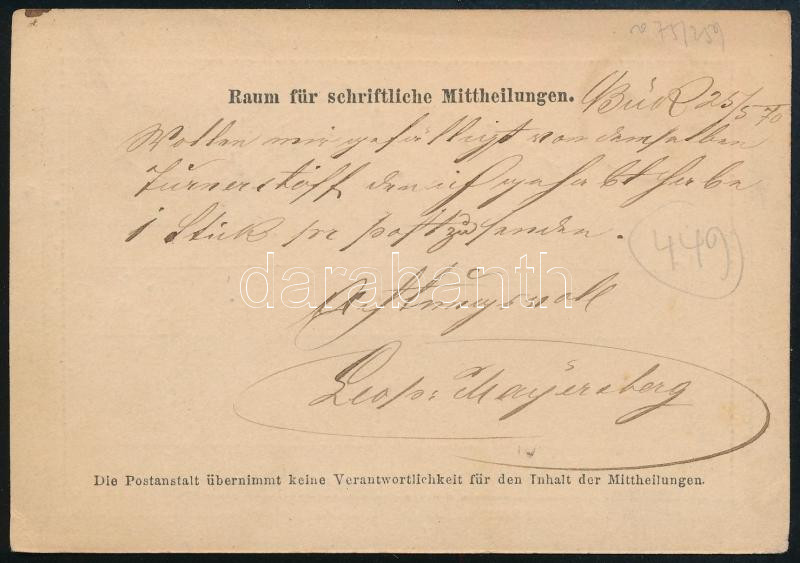 № 75/259
Raum für schriftliche Mittheilungen. Bük 25/5 70
Wollen mir gefälligst von demselben
Turnerstoff den ich gehabt habe
1 Stück pr post zu senden.
449
darabanth
Achtungsvoll
Leop: Mayersberg
Die Postanstalt übernimmt keine Verantwortlichkeit für den Inhalt der Mittheilungen.